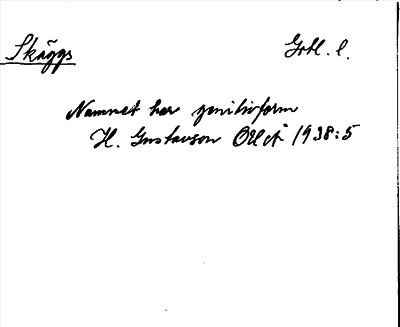 Skäggs
Gotl. l.
Namnet har genitivform
H. Gustavson 1938:5